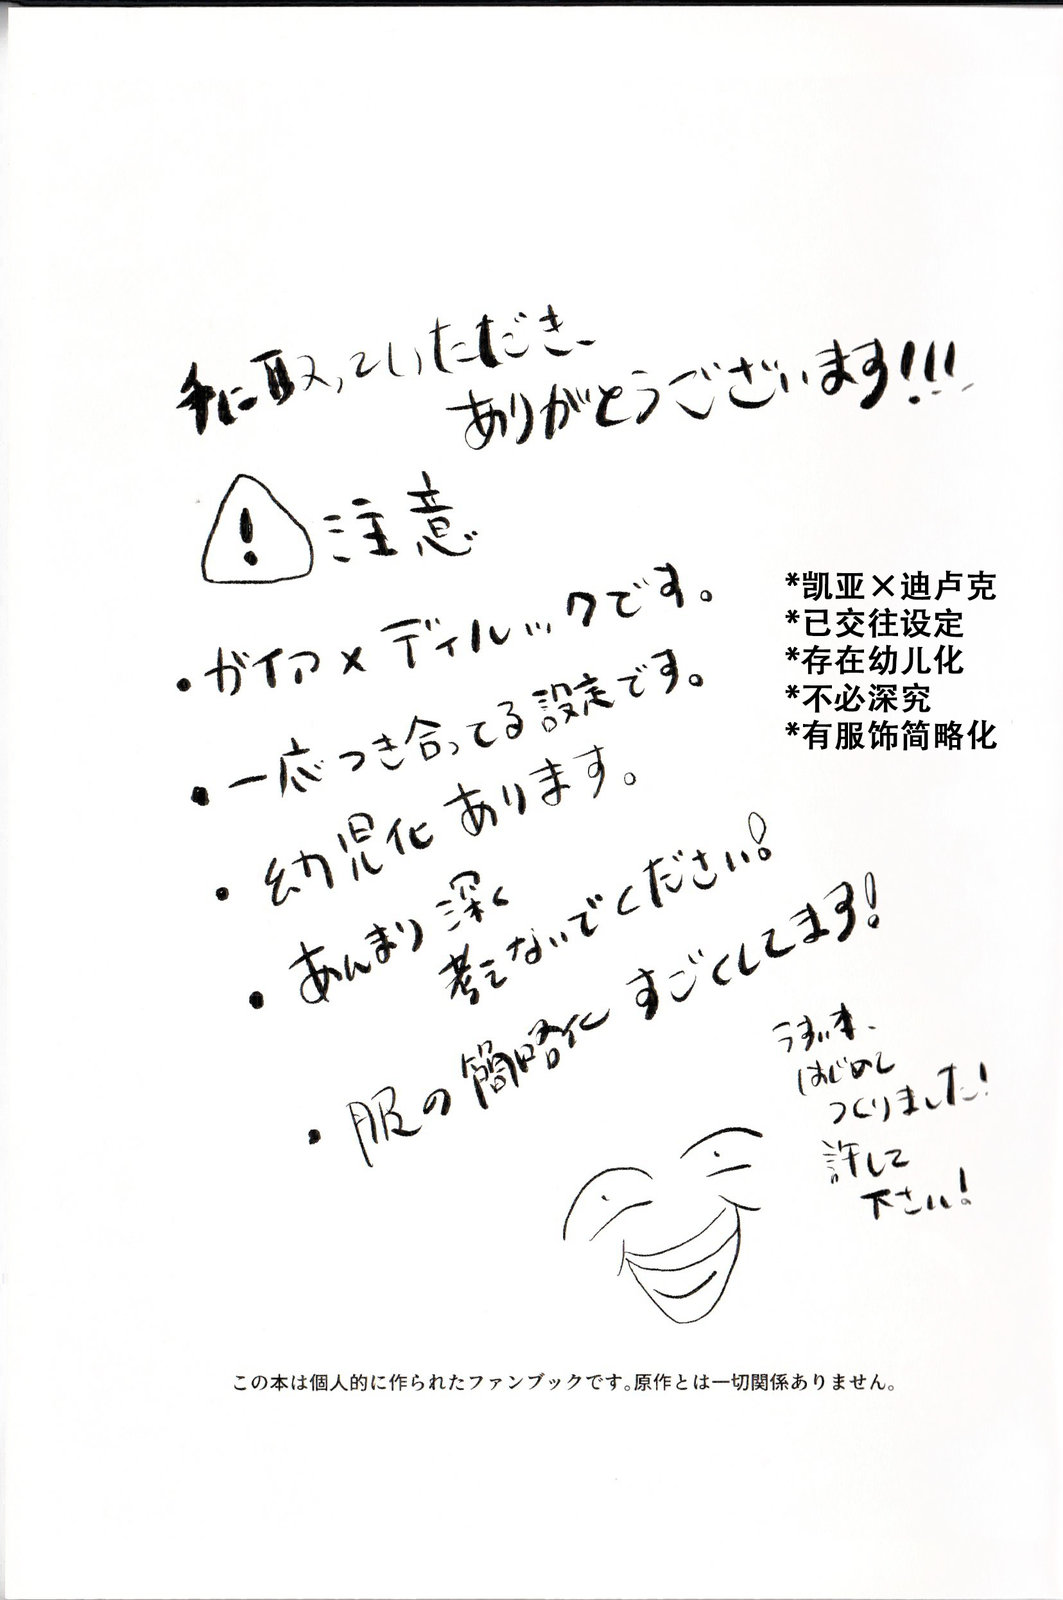 手に取っていただき、
ありがとうございます!!!
! 注意
・ガイア×ディルックです。
・一応つき合ってる設定です。
・幼児化あります。
・あんまり深く
考えないでください!
・服の簡略化すごくしてます!
*凯亚×迪卢克
*已交往设定
*存在幼儿化
*不必深究
*有服饰简略化
うすい本、
はじめて
つくりました!
許して
下さい!
この本は個人的に作られたファンブックです。原作とは一切関係ありません。